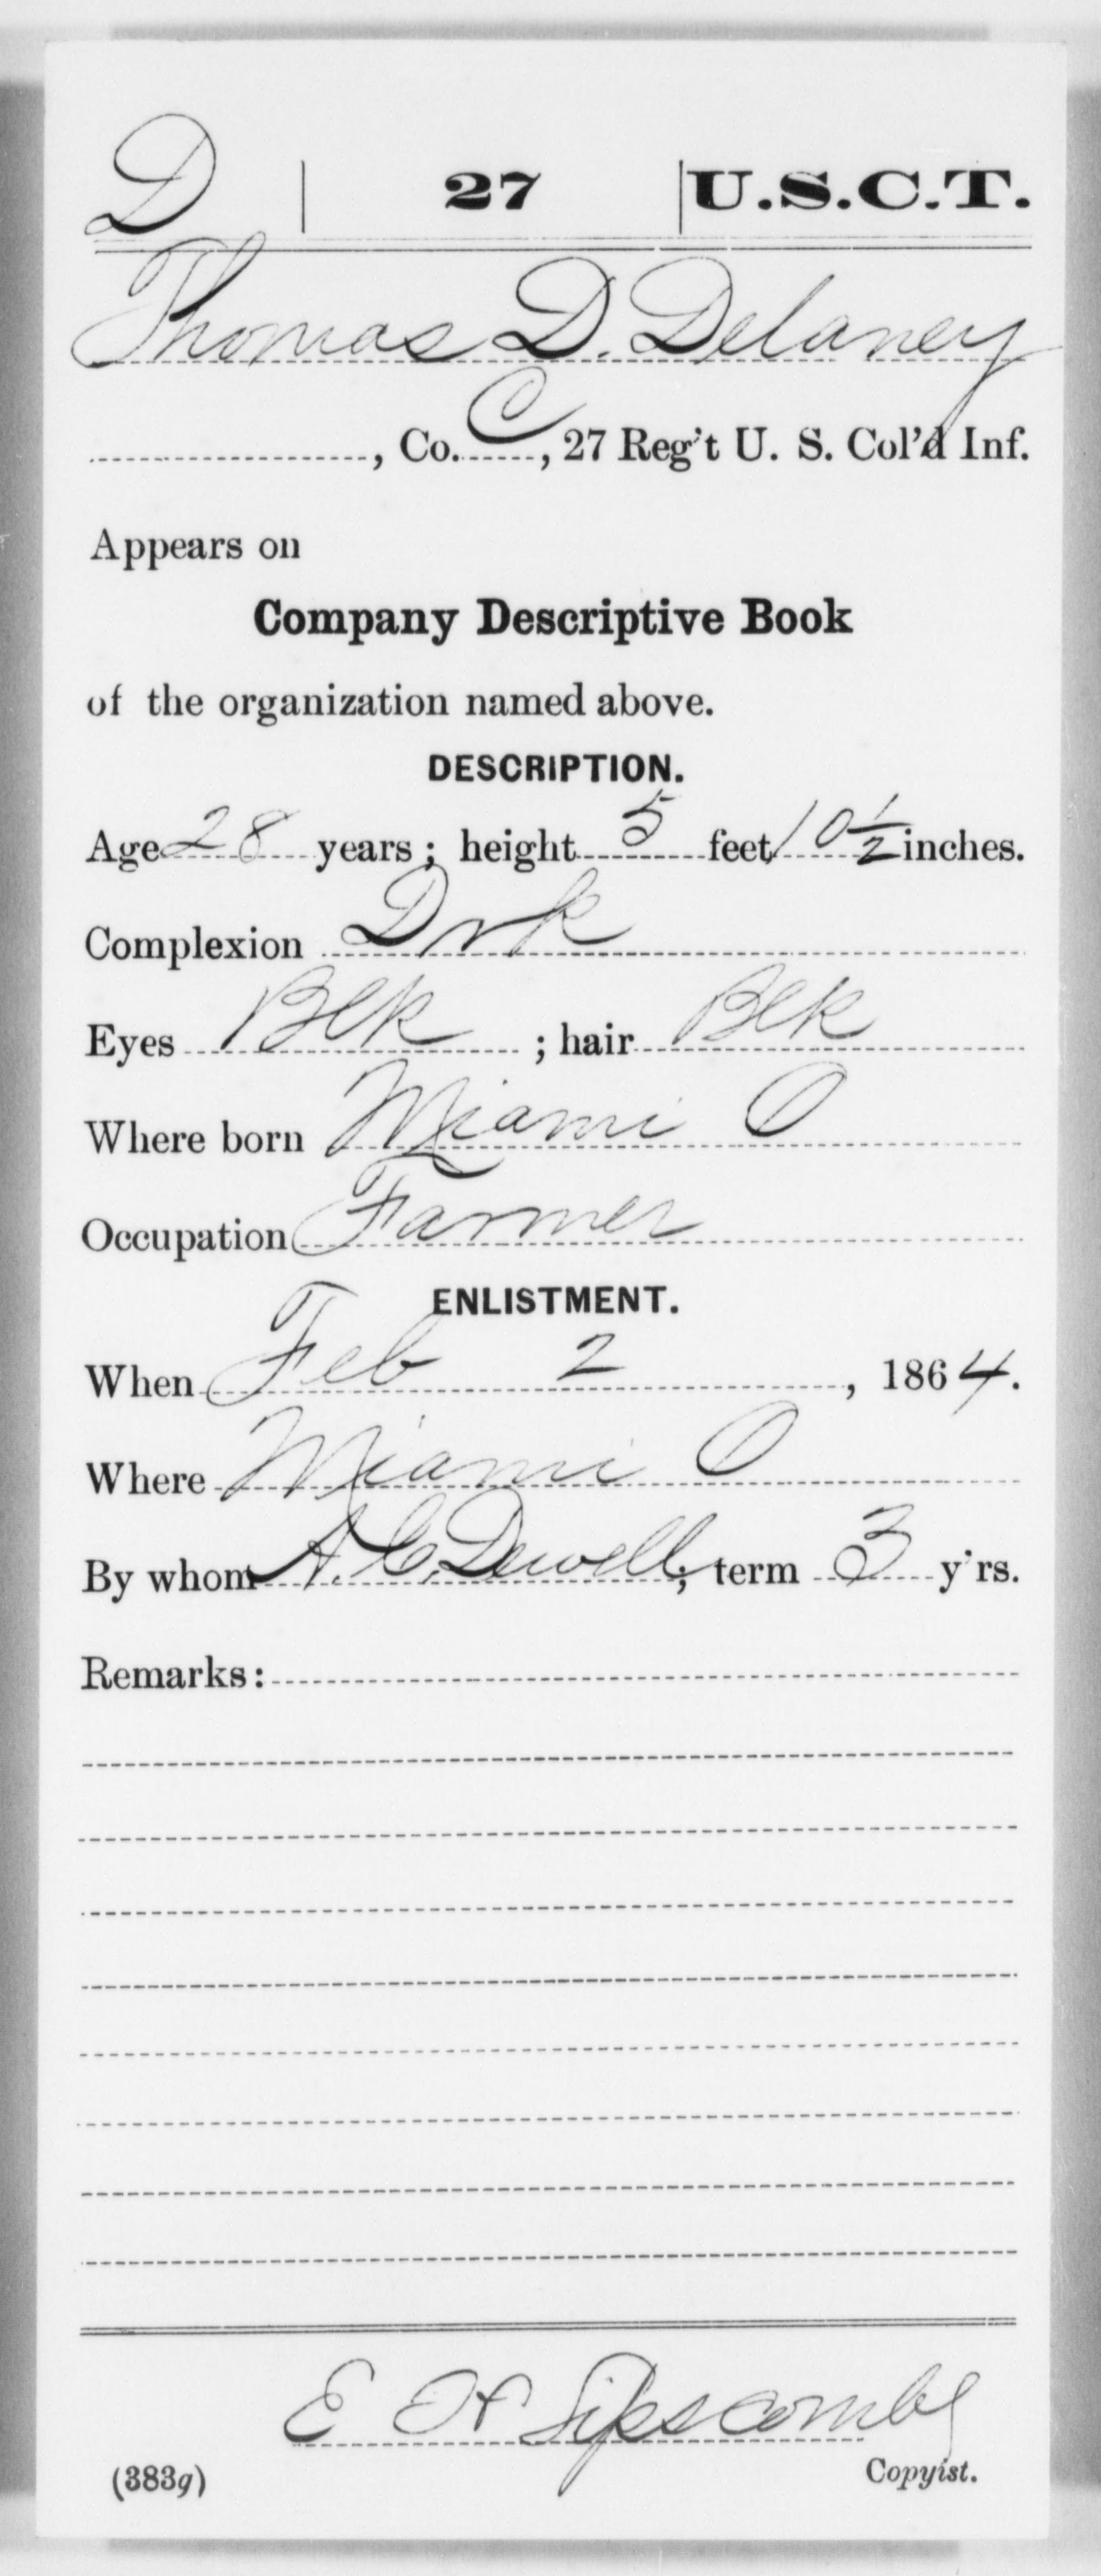 D | 27 | U.S.C.T.
Thomas D. Delaney
, Co. C, 27 Reg't U. S. Col'd Inf.
Appears on
Company Descriptive Book
of the organization named above.
DESCRIPTION.
Age 28 years; height 5 feet 10 1/2 inches.
Complexion Drk
Eyes Blk ; hair Blk
Where born Miami O
Occupation Farmer
ENLISTMENT.
When Feb 2, 1864.
Where Miami O
By whom A. C. Dewell; term 3 y'rs.
Remarks:
E H Lipscomb
(383g) Copyist.